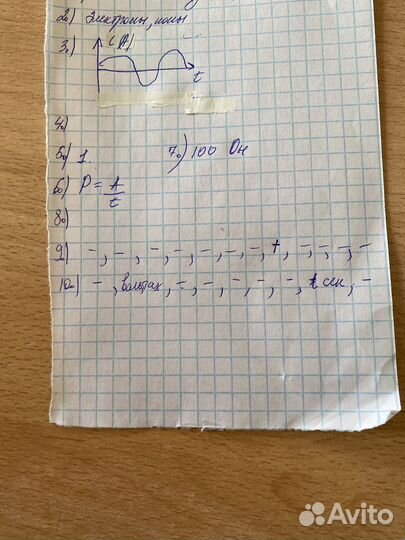 2.) Электроны, ионы
3.) i(A)
t
4.)
5.) 1. 7.) 100 Он
6.) P = A/t
8.)
9.) -, -, -, -, -, -, -, +, -, -, -, -
10.) -, вольтах, -, -, -, -, -, сек, -
Avito